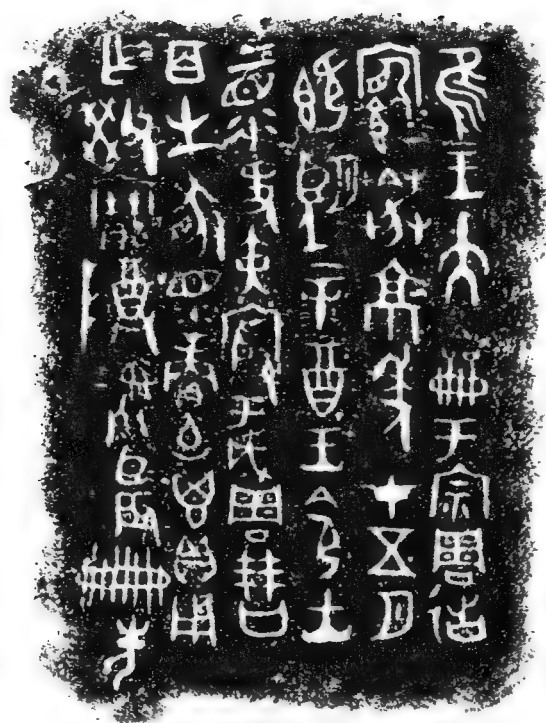 隹王大龠于宗周𢓊
館葊京年才五月
既望辛酉王令士
上眔史寅殷于成周
百生豚眔賞卣鬯貝
用乍父癸寶尊彝臣辰冊先